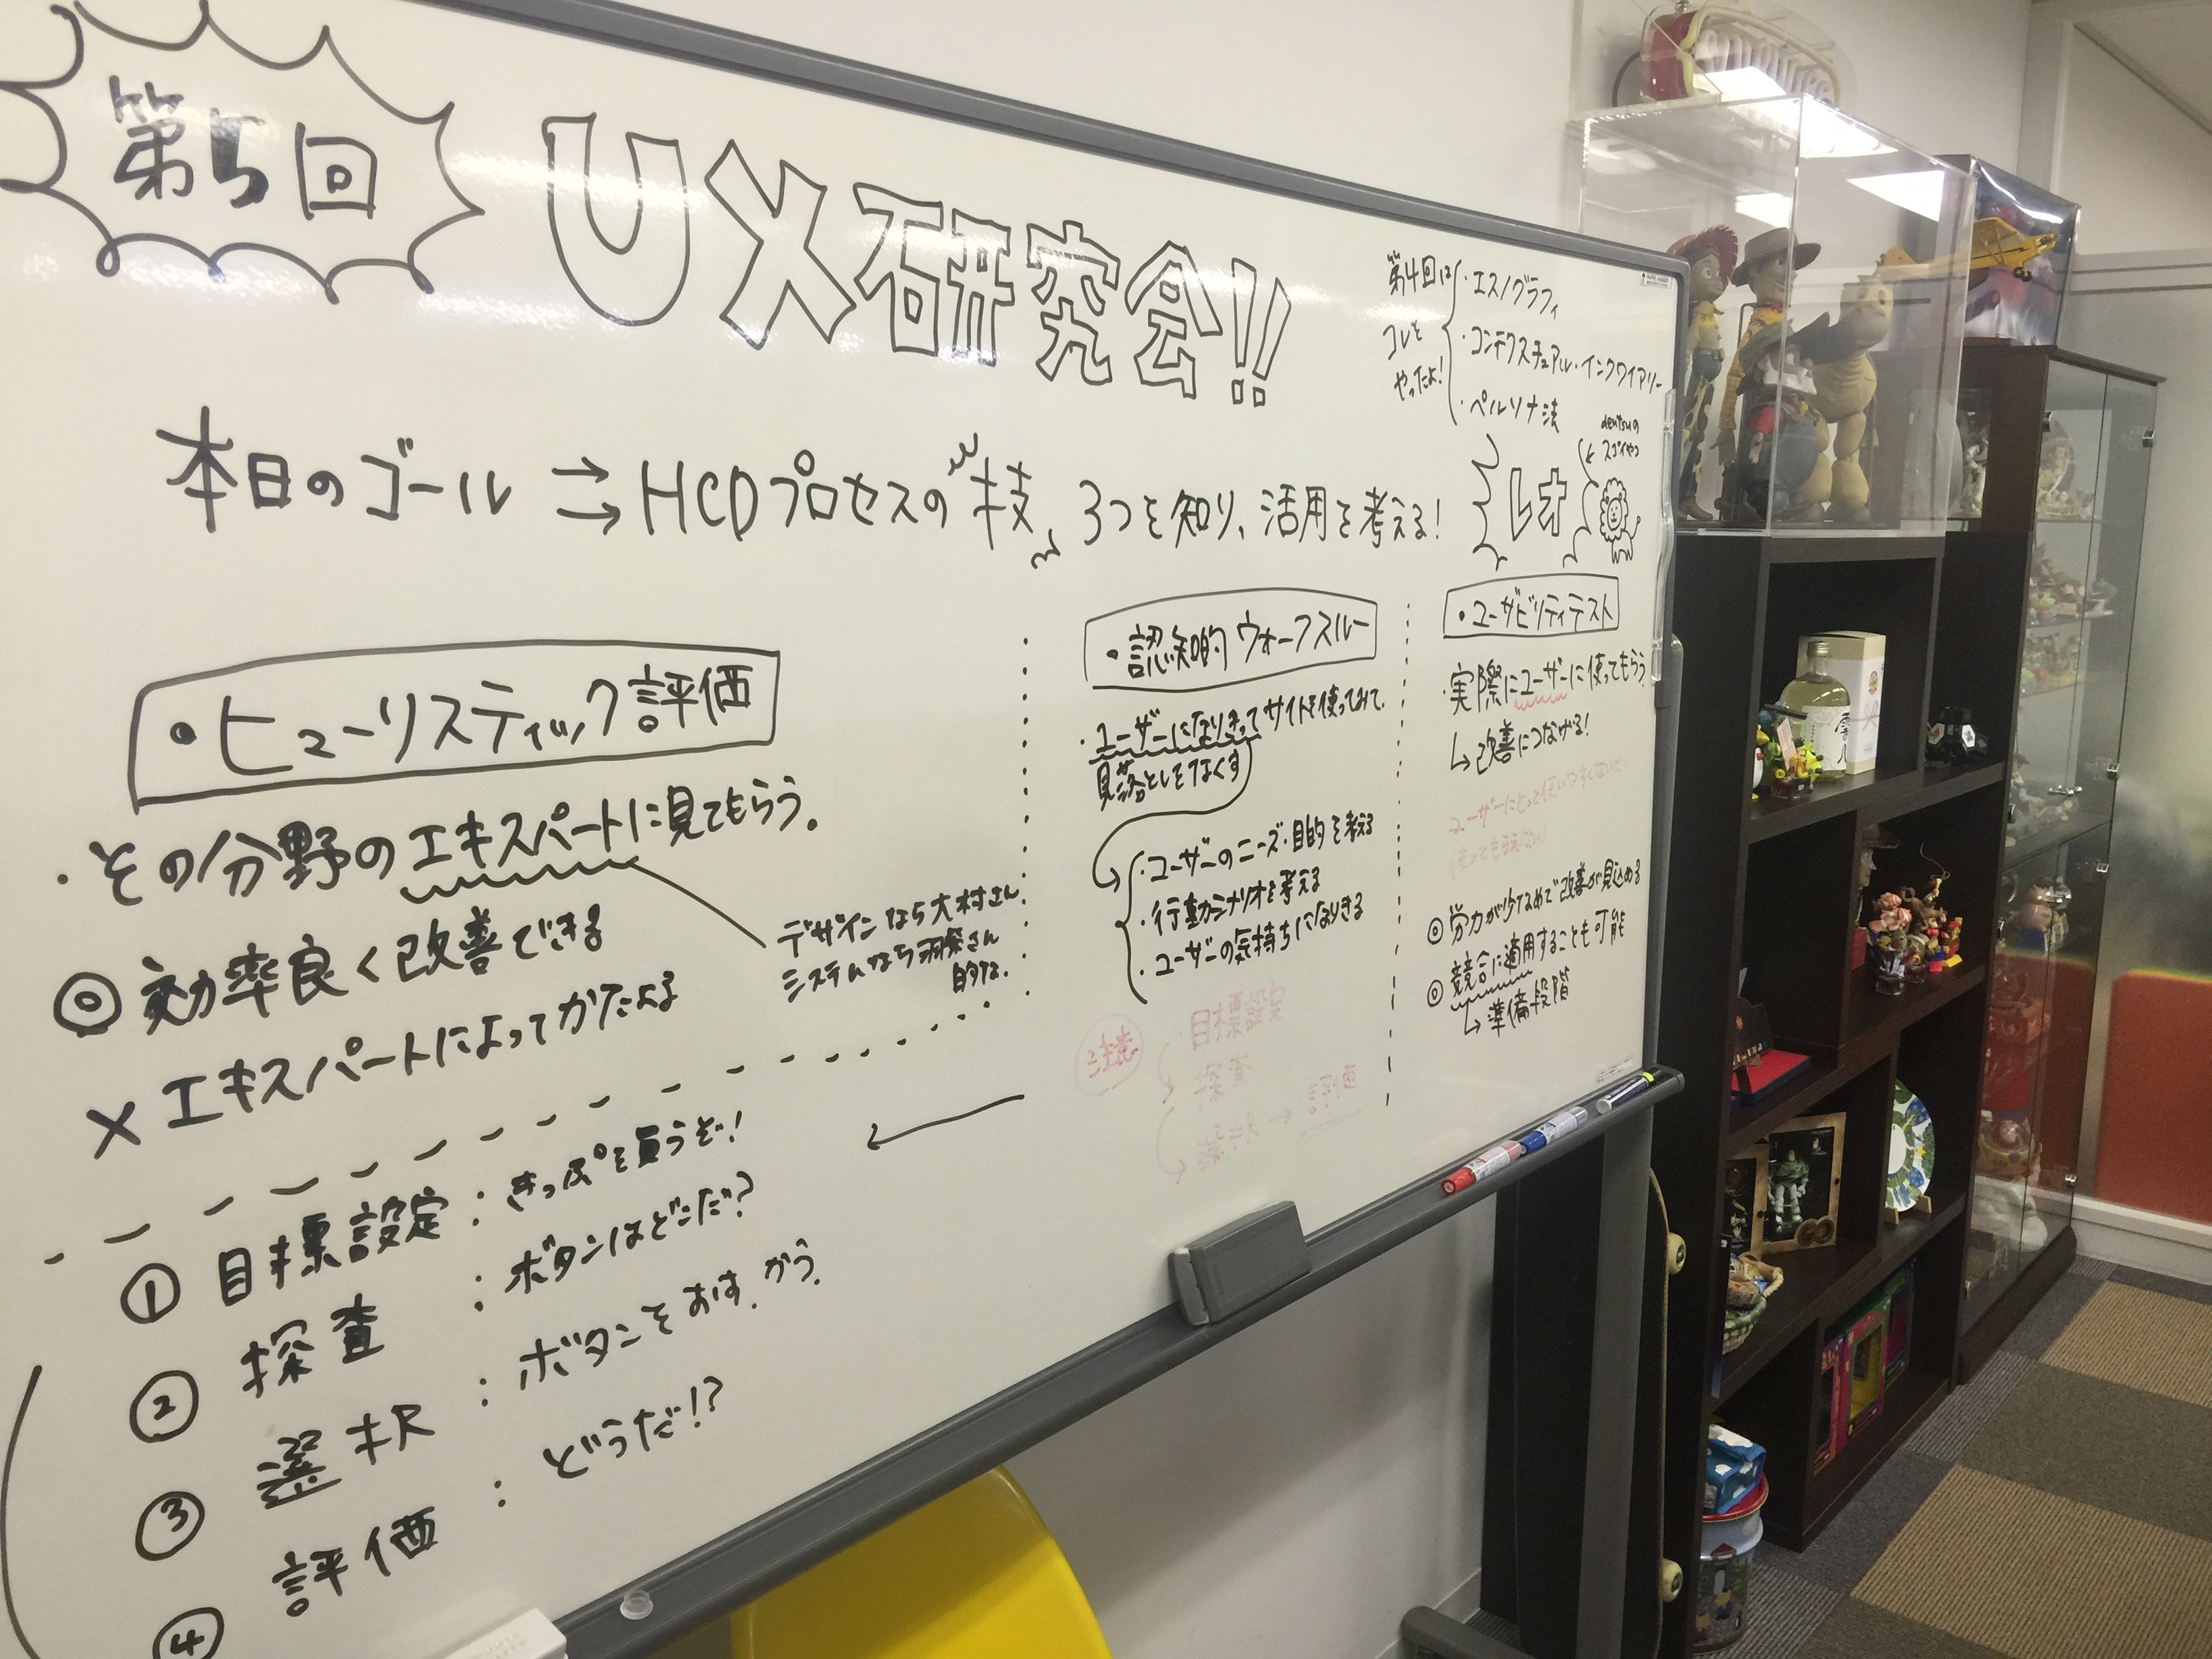 第5回
UX研究会!!
第4回は
コレを
やったよ!
・エスノグラフィ
・コンテクスチュアル・インクワイアリー
・ペルソナ法
本日のゴール → HCDプロセスの技、3つを知り、活用を考える!
レオ
dentsuの
スゴイやつ
・ヒューリスティック評価
・その分野のエキスパートに見てもらう。
デザインなら大村さん
システムなら
さん
的な。
◎効率良く改善できる
×エキスパートによってかたよる
・認知的ウォークスルー
・ユーザーになりきってサイトを使ってみて、
見落としをなくす
・ユーザーのニーズ・目的を考える
・行動シナリオを考える
・ユーザーの気持ちになりきる
・目標設定
探査
評価
・ユーザビリティテスト
・実際にユーザーに使ってもらう
↳改善につなげる!
ユーザーにとって使いやすくないと、
使ってもらえない!
◎労力が少なめで改善が見込める
◎競合に適用することも可能
↳準備段階
① 目標設定:きっぷを買うぞ!
② 探査:ボタンはどこだ?
③ 選択:ボタンをおす、かう。
④ 評価:どうだ!?